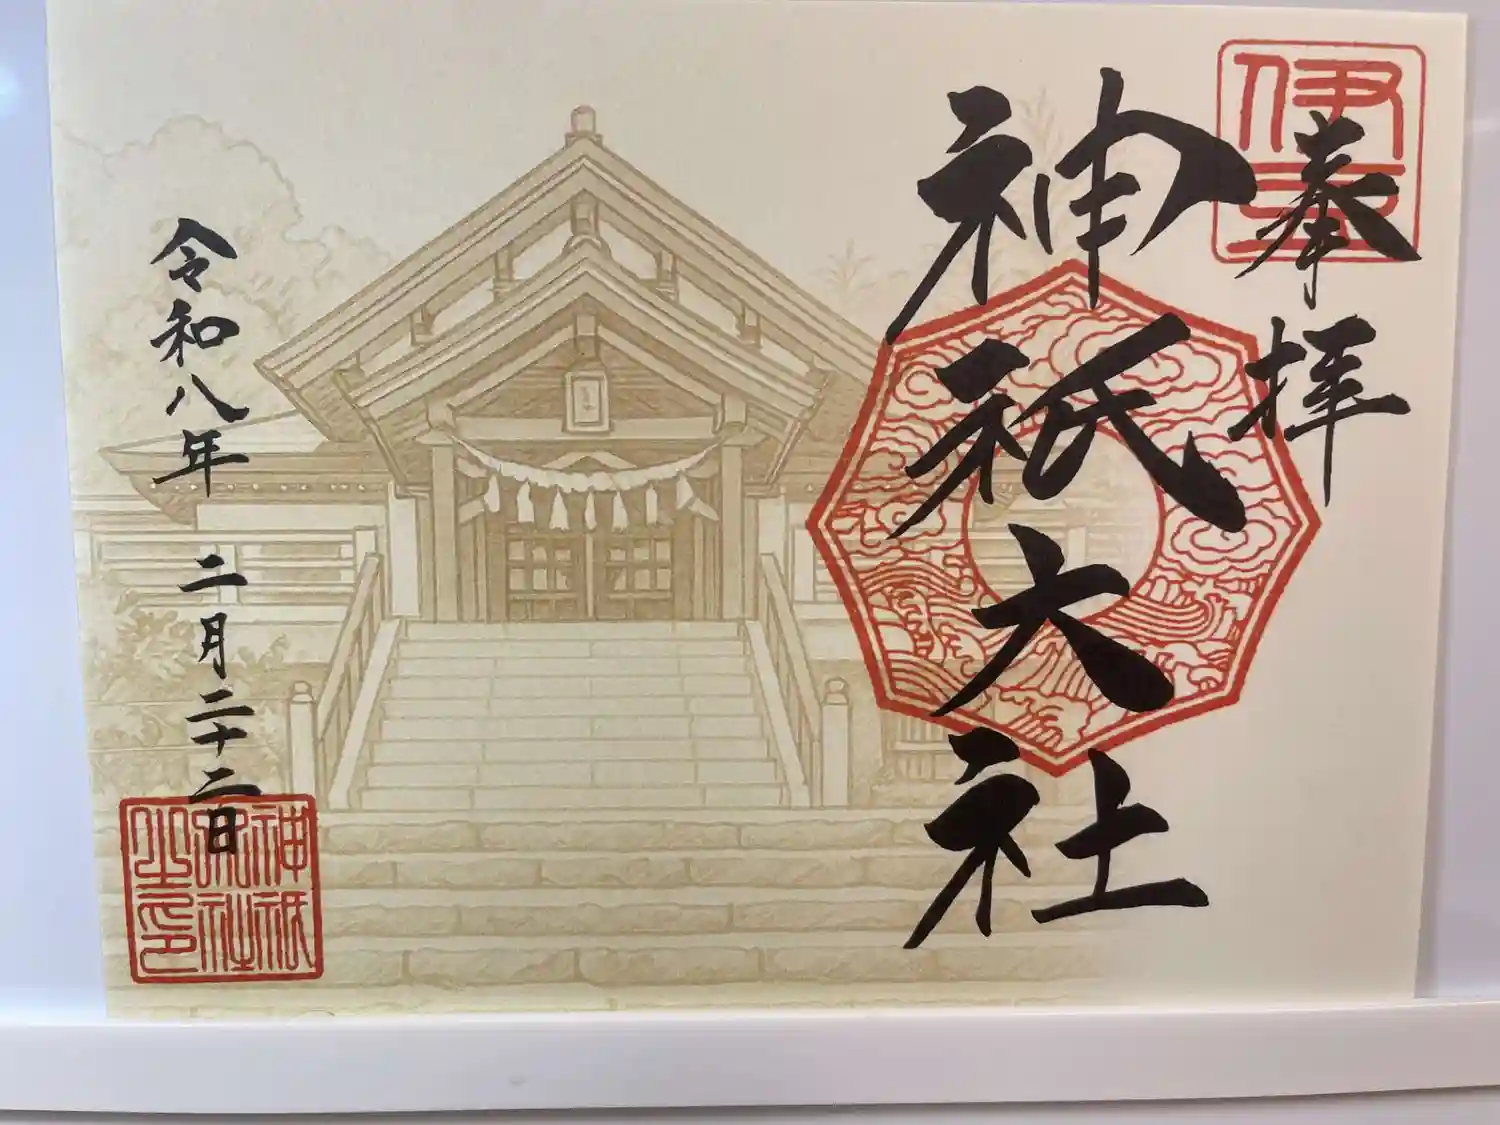 奉拝
伊豆
神祇大社
令和八年 二月二十二日
神祇
大社
之印